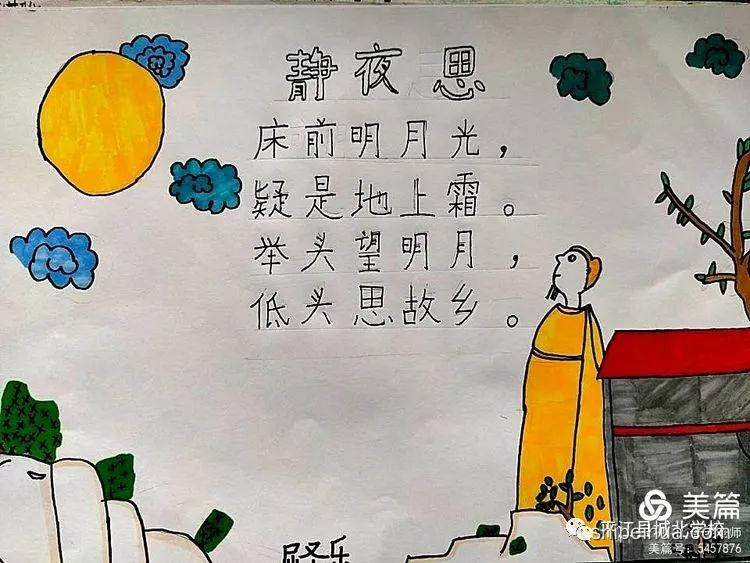 静夜思
床前明月光，
疑是地上霜。
举头望明月，
低头思故乡。
美篇
平江县城北学校
美篇号：5457876